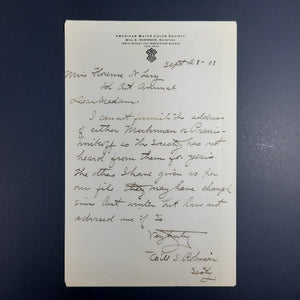 AMERICAN WATER COLOR SOCIETY
WILL S. ROBINSON, SECRETARY
Sept 23-08.
Miss Florence N Levy
Ed Art Annual
Dear Madam:
I cannot furnish the address
of either Muhrman or
as the Society has not
heard from them for years
the others I have given as per
our file they may have changed
since last winter but have not
advised me if so
Very truly
Will S. Robinson
Secty